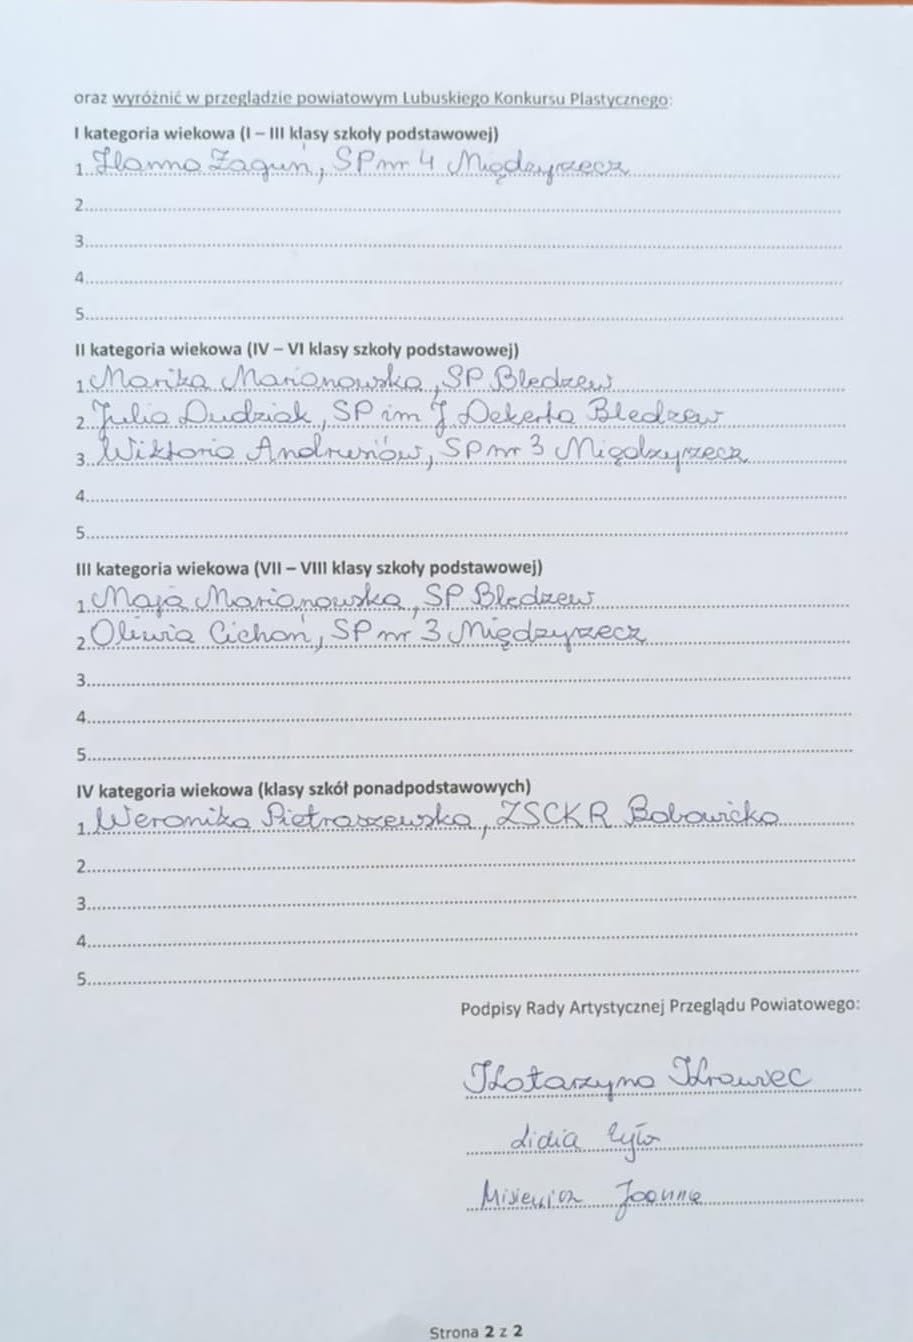 oraz wyróżnić w przeglądzie powiatowym Lubuskiego Konkursu Plastycznego:
I kategoria wiekowa (I – III klasy szkoły podstawowej)
1. Hanna Zaguń, SP nr 4 Międzyrzecz
2.
3.
4.
5.
II kategoria wiekowa (IV – VI klasy szkoły podstawowej)
1. Marika Marianowska, SP Bledzew
2. Julia Dudziak, SP im J. Dekerta Bledzew
3. Wiktoria Andrunów, SP nr 3 Międzyrzecz
4.
5.
III kategoria wiekowa (VII – VIII klasy szkoły podstawowej)
1. Maja Marianowska, SP Bledzew
2. Oliwia Cichoń, SP nr 3 Międzyrzecz
3.
4.
5.
IV kategoria wiekowa (klasy szkół ponadpodstawowych)
1. Weronika Pietraszewska, ZSCKR Bobowicko
2.
3.
4.
5.
Podpisy Rady Artystycznej Przeglądu Powiatowego:
Katarzyna Krawiec
Lidia
Misiewicz Joanna
Strona 2 z 2